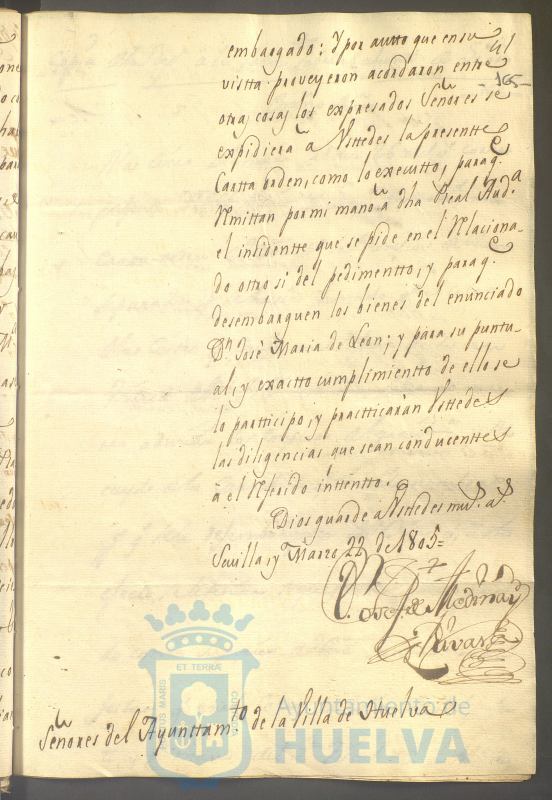 embargado: Y por autto que en su
165
vistta proveyeron acordaron entre
otras cosas los expresados Señores se
expidiera â Vsttedes la presentte
Cartta orden, como lo executto, para q.e
Rmittan por mi mano â dha Real Aud.a
el insidentte que se pide en el Relaciona-
do otro si del pedimentto, y para q.e
desembarguen los bienes del enunciado
D.n Josè Maria de Leon; y para su puntu-
al, y exactto cumplimientto de ello se
lo partticipo, y practticaràn Vsttedes
las diligencias que sean conducenttes
â el Referido inttentto.
Dios guarde â Vsttedes mu.s a.s
Sevilla, y Marzo 22 de 1805=
Medina y
Señores del Ayunttam.to de la Villa de Huelva
PORTUS MARIS
ET TERRÆ
CUSTODIA
Ayuntamiento de
HUELVA